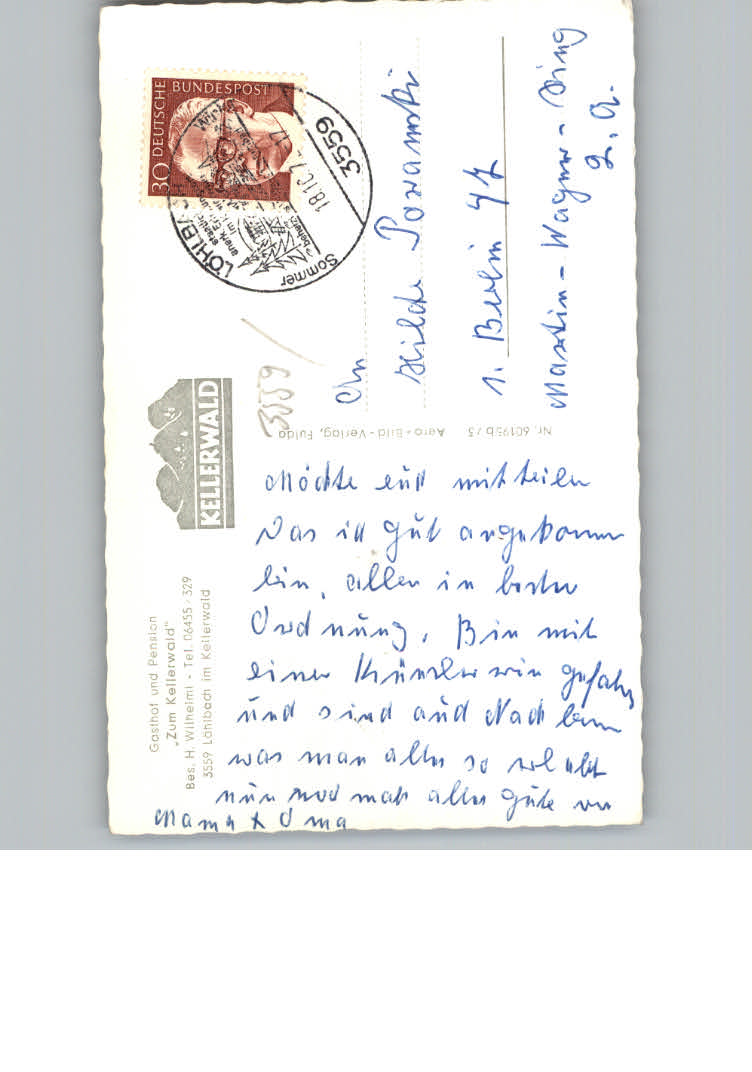 Gasthof und Pension
„Zum Kellerwald"
Bes. H. Wilhelmi - Tel. 06455 / 329
3559 Löhlbach im Kellerwald
KELLERWALD
Möchte euch mitteilen
Das ich gut angekommen
bin, alles in bester
Ordnung. Bin mit
einer Künstlerin gefahren
und sind auch Nachbarn
was man alles so erlebt
nun noch mals alles gute von
Mama + Oma
Nr. 60195b/3 Aero-Bild-Verlag, Fulda
3559
DEUTSCHE BUNDESPOST
30
3559 LÖHLBA
18.10.7
Sommer
An
Hilde
1. Berlin 47
Martin-Wagner-Ring
2, a.